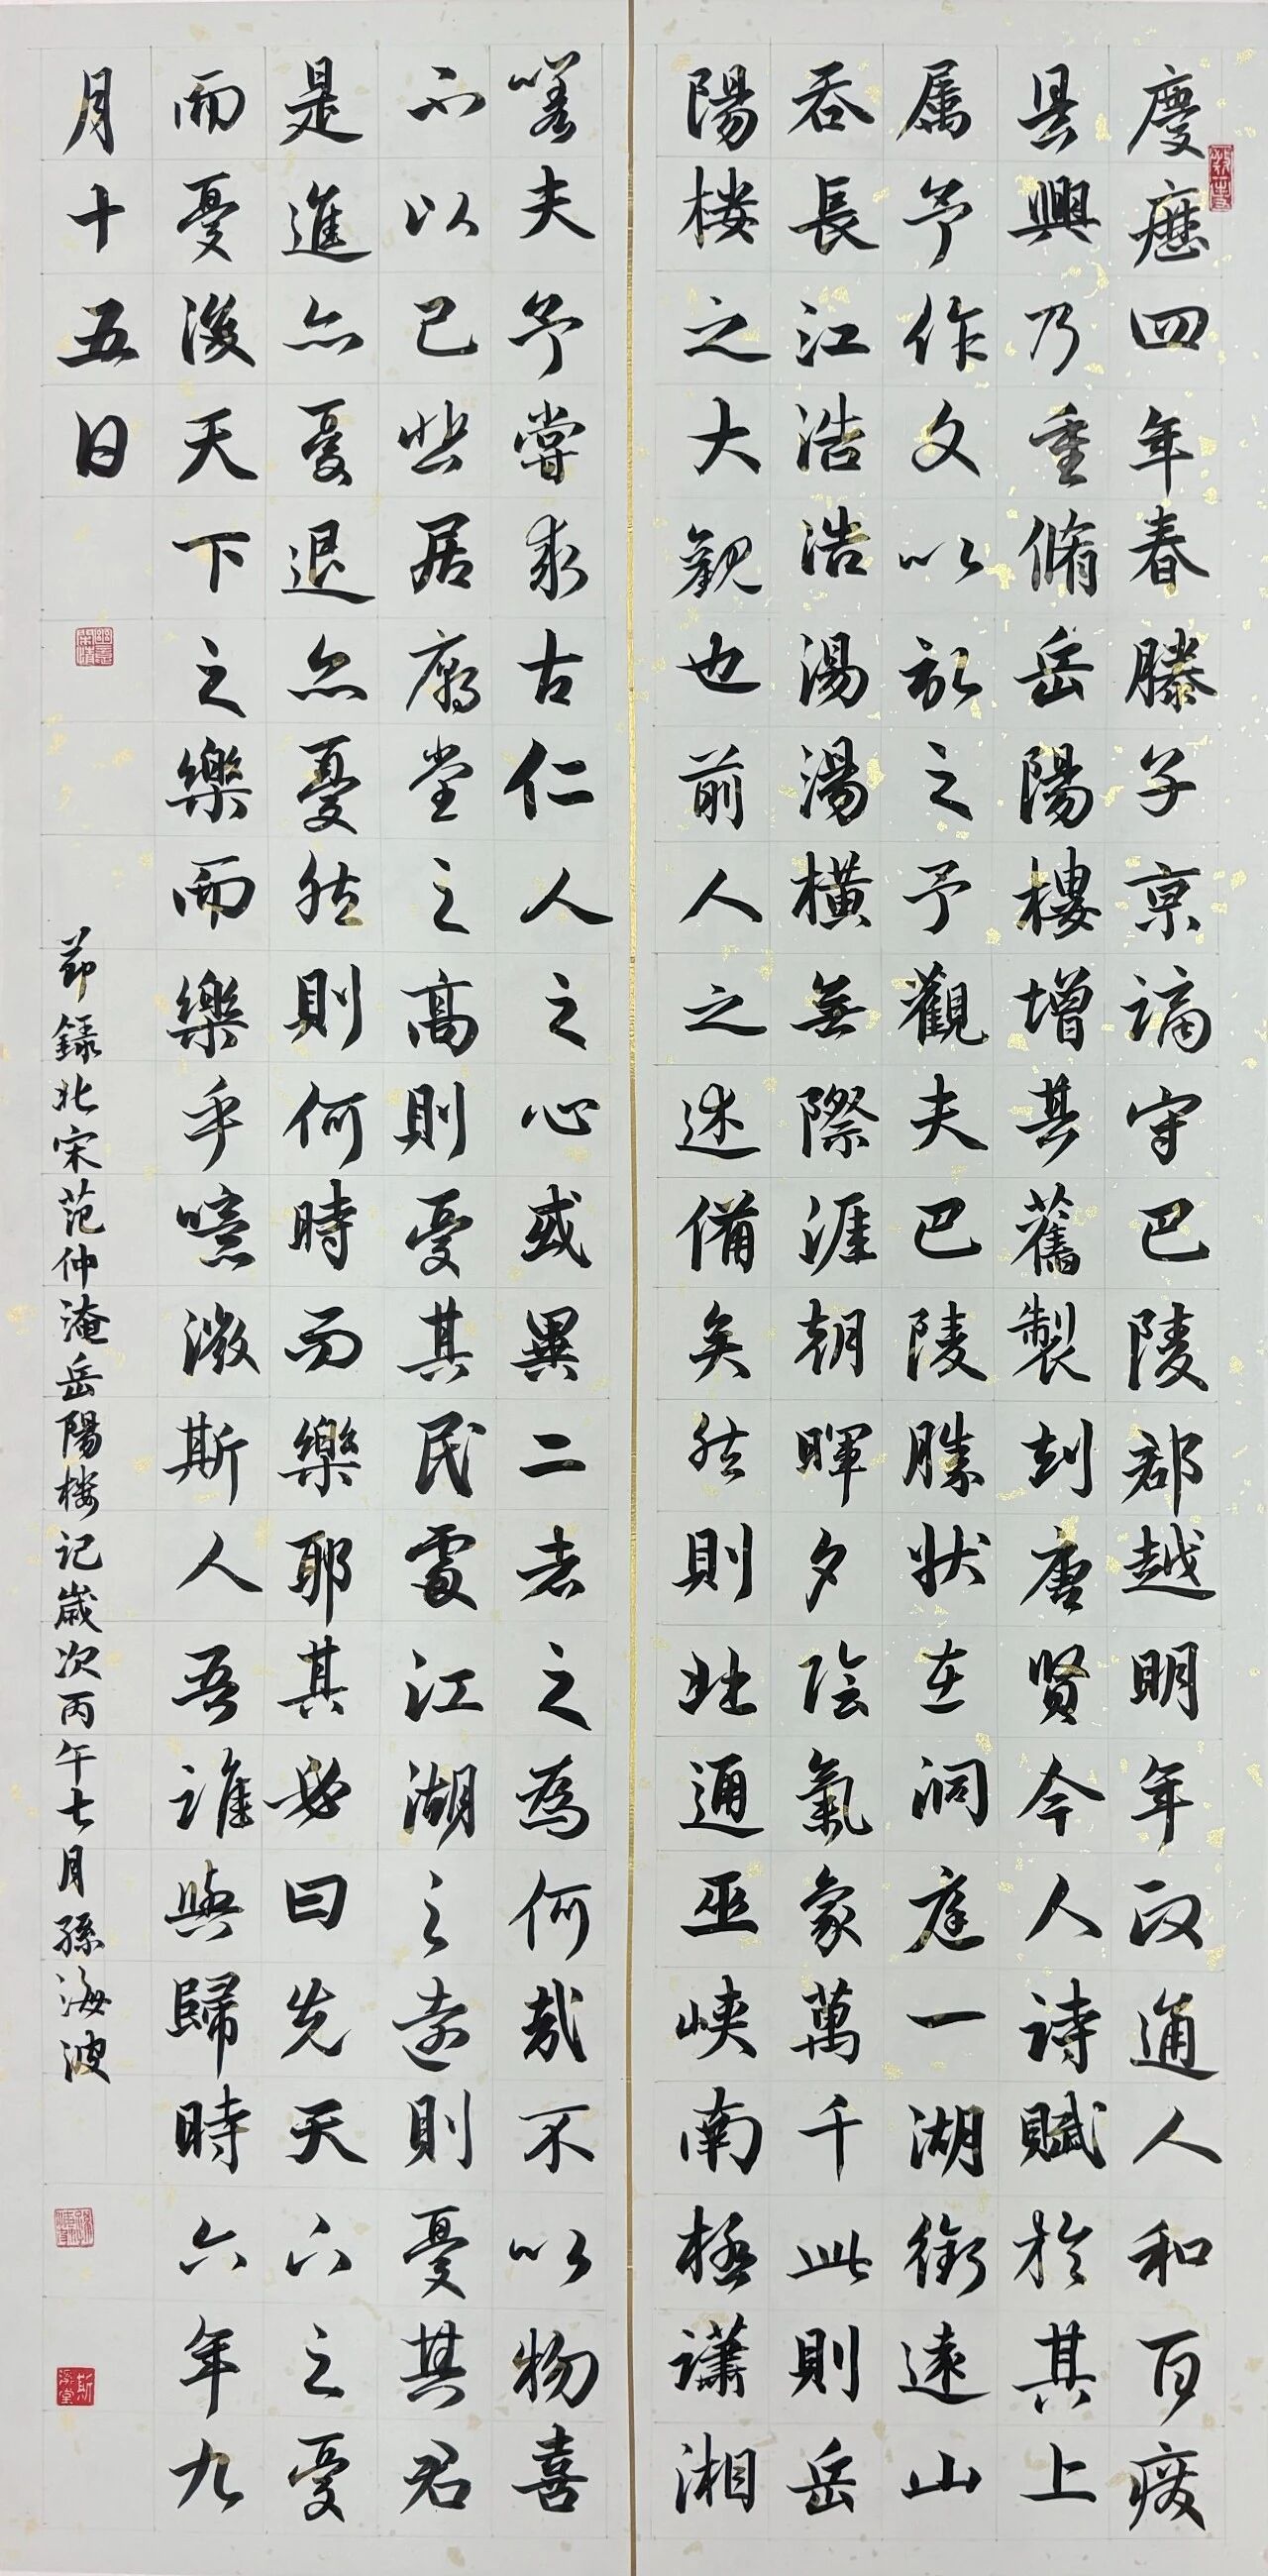 慶曆四年春滕子京謫守巴陵郡越明年政通人和百廢
具興乃重脩岳陽樓增其舊製刻唐賢今人詩賦於其上
屬予作文以記之予觀夫巴陵勝狀在洞庭一湖銜遠山
吞長江浩浩湯湯橫無際涯朝暉夕陰氣象萬千此則岳
陽楼之大觀也前人之述備矣然則北通巫峽南極瀟湘
嗟夫予嘗求古仁人之心或異二者之為何哉不以物喜
不以己悲居廟堂之高則憂其民處江湖之遠則憂其君
是進亦憂退亦憂然則何時而樂耶其必曰先天下之憂
而憂後天下之樂而樂乎噫微斯人吾誰與歸時六年九
月十五日
節錄北宋范仲淹岳陽楼记歲次丙午七月孫海波